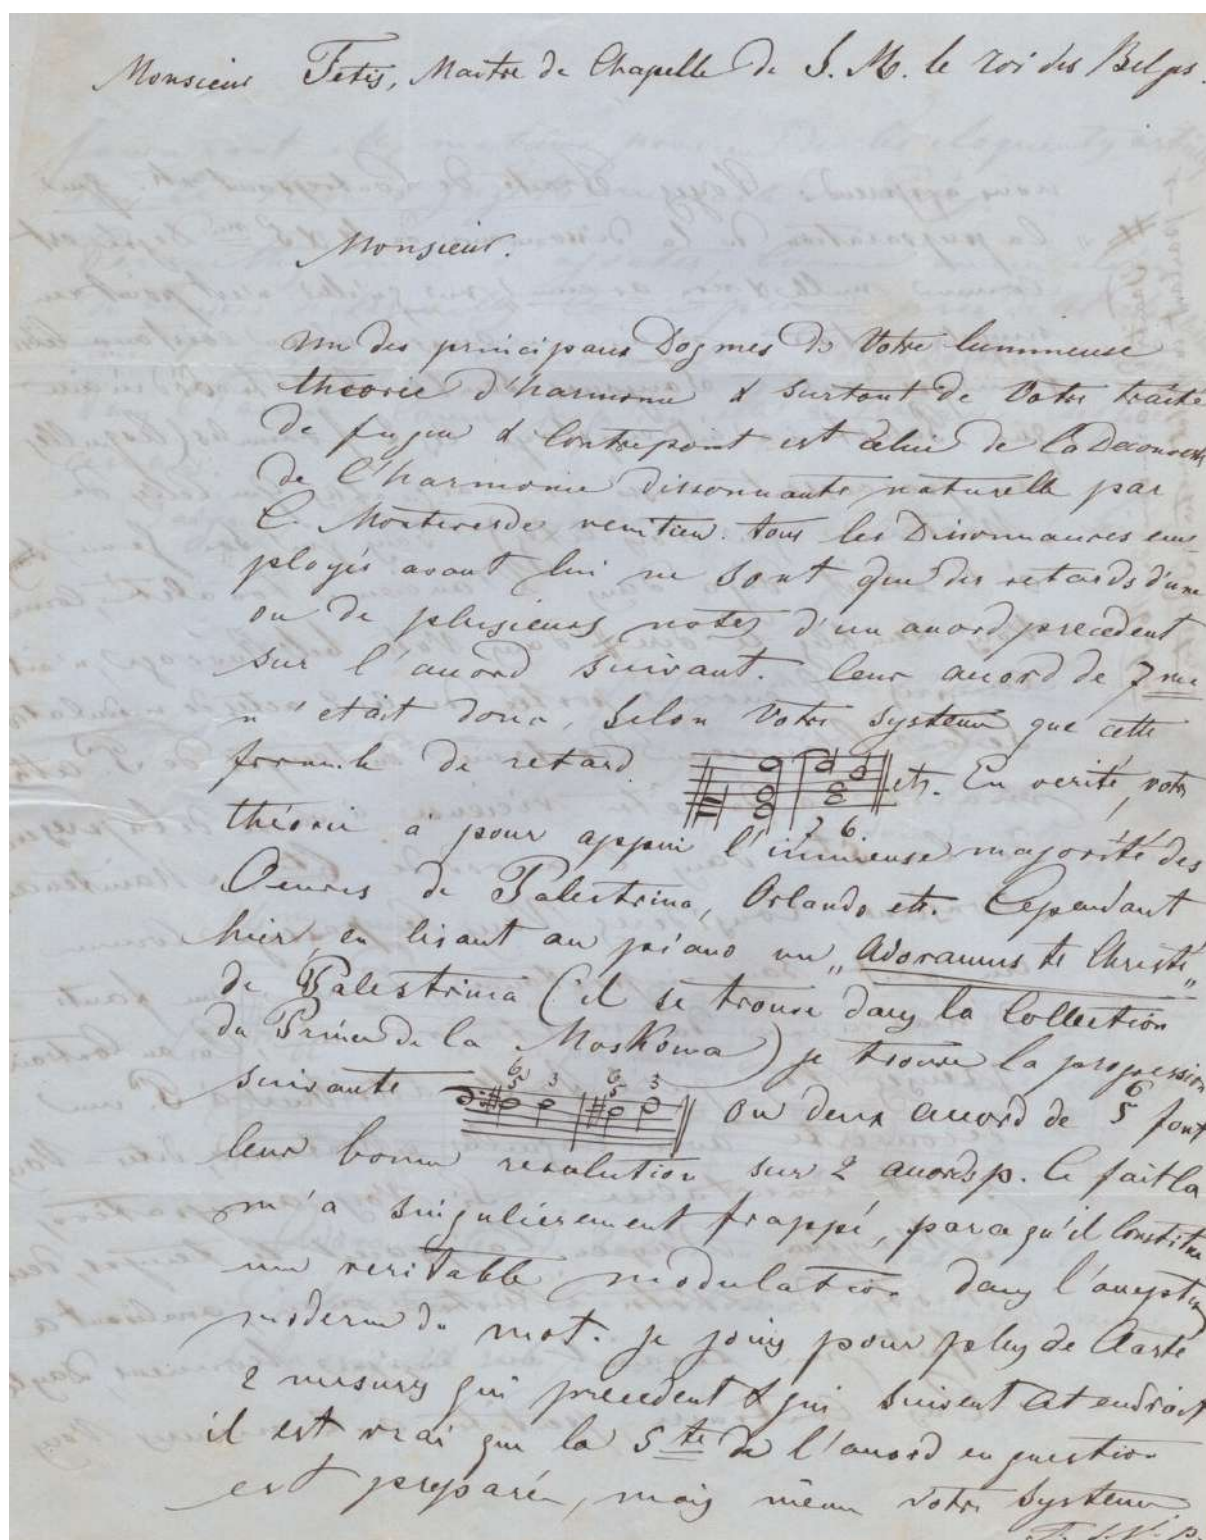 Monsieur Fetis, Maitre de Chapelle de S. M. le roi des Belges.
Monsieur.
Un des principaux Dogmes de Votre lumineuse
theorie d'harmonie & surtout de Votre traité
de fugue & Contrepoint est celui de la Decouverte
de l'harmonie dissonnante naturelle par
C. Monteverde venitien. tous les Dissonnances em-
ployés avant lui ne sont que des retards d'une
ou de plusieurs notes d'un accord precedent
sur l'accord suivant. leur accord de 7me
n'était donc, selon Votre systeme que cette
formule de retard. 7 6. etc. En verité, votre
théorie à pour appui l'immense majorité des
Oeuvres de Palestrina, Orlando etc. Cependant
hier, en lisant au piano un „Adoramus te Christe"
de Palestrina (il se trouve dans la Collection
du Prince de la Moskowa) je trouve la progression
suivante 6 5 3 6 5 3 ou deux accord de 6 5 font
leur bonne resolution sur 2 accords p. Ce fait la
m'a singulièrement frappé, parce qu'il constitue
une veritable modulation dans l'acception
moderne du mot. je joins pour plus de Clarté
2 mesures qui precedent & qui suivent cet endroit
il est vrai que la 5te de l'accord en question
est preparée, mais même votre systeme
T. S. V. p.